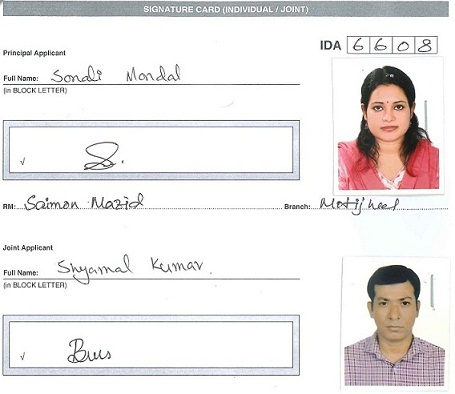 SIGNATURE CARD (INDIVIDUAL / JOINT)
IDA 6608
Principal Applicant
Full Name: Sonali Mondal
(in BLOCK LETTER)
√
RM: Saimon Mazid Branch: Motijheel
Joint Applicant
Full Name: Shyamal Kumar
(in BLOCK LETTER)
√